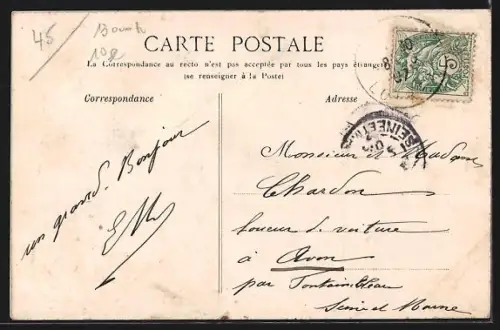 45
CARTE POSTALE
La Correspondance au recto n'est pas acceptée par tous les pays étrangers
(se renseigner à la Poste)
Correspondance
Adresse
un grand Bonjour
Monsieur et Madame
Chardon
loueur de voiture
à Avon
par Fontainebleau
Seine et Marne
SEINE ET M